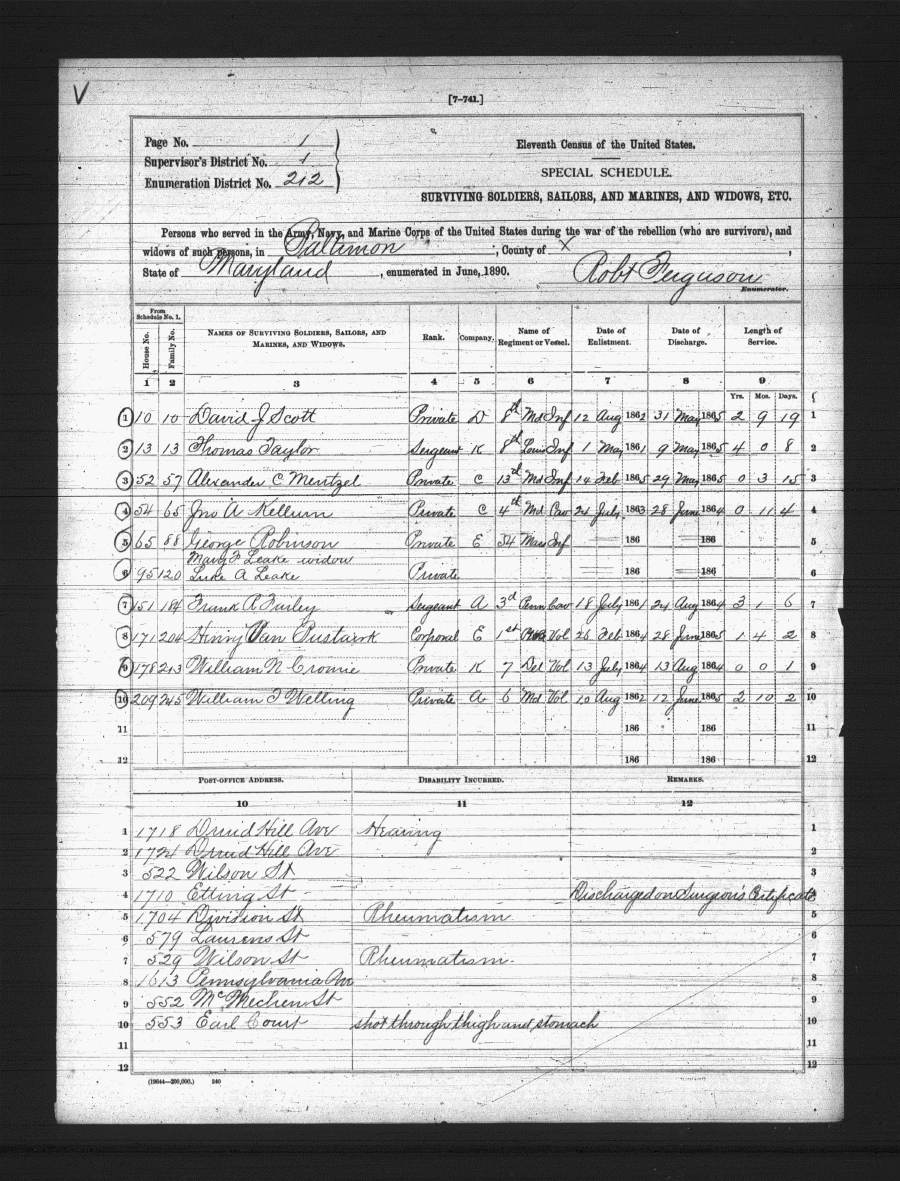 V
[7-741.]
Page No. 1
Supervisor's District No. 1
Enumeration District No. 212
Eleventh Census of the United States.
SPECIAL SCHEDULE.
SURVIVING SOLDIERS, SAILORS, AND MARINES, AND WIDOWS, ETC.
Persons who served in the Army, Navy, and Marine Corps of the United States during the war of the rebellion (who are survivors), and
widows of such persons, in Baltimore, County of X,
State of Maryland, enumerated in June, 1890. Robt Ferguson
Enumerator.
From Schedule No. 1.
House No. Family No. NAMES OF SURVIVING SOLDIERS, SAILORS, AND MARINES, AND WIDOWS. Rank. Company. Name of Regiment or Vessel. Date of Enlistment. Date of Discharge. Length of Service.
1 2 3 4 5 6 7 8 9
Yrs. Mos. Days.
1 10 10 David J Scott Private D 8th Md Inf 12 Aug 1862 31 May 1865 2 9 19 1
2 13 13 Thomas Taylor Sergeant K 8th Loui Inf 1 May 1861 9 May 1865 4 0 8 2
3 52 57 Alexander C Mentzel Private C 13th Md Inf 14 Feb 1865 29 May 1865 0 3 15 3
4 54 65 Jno A Kellum Private C 4th Md Cav 24 July 1863 28 June 1864 0 11 4 4
5 65 88 George Robinson Private E 54 Mass Inf 186 186 5
Mary F Leake widow
6 95 120 Luke A Leake Private 186 186 6
7 151 184 Frank R Furley Sergeant A 3d Penn Cav 18 July 1861 24 Aug 1864 3 1 6 7
8 171 204 Henry Van Corporal E 1st Vol 26 Feb 1864 28 June 1865 1 4 2 8
9 178 213 William N Cromie Private K 7 Del Vol 13 July 1864 13 Aug 1864 0 0 1 9
10 209 245 William T Welling Private A 6 Md Vol 10 Aug 1862 12 June 1865 2 10 2 10
11 186 186 11
12 186 186 12
POST-OFFICE ADDRESS. DISABILITY INCURRED. REMARKS.
10 11 12
1 1718 Druid Hill Ave Hearing 1
2 1724 Druid Hill Ave 2
3 522 Wilson St 3
4 1710 Etting St Discharged on Surgeon's Certificate 4
5 1704 Division St Rheumatism 5
6 579 Laurens St 6
7 529 Wilson St Rheumatism. 7
8 1613 Pennsylvania Ave 8
9 552 McMechen St 9
10 553 Earl Court shot through thigh and stomach 10
11 11
12 12
(19644—200,000.) 240